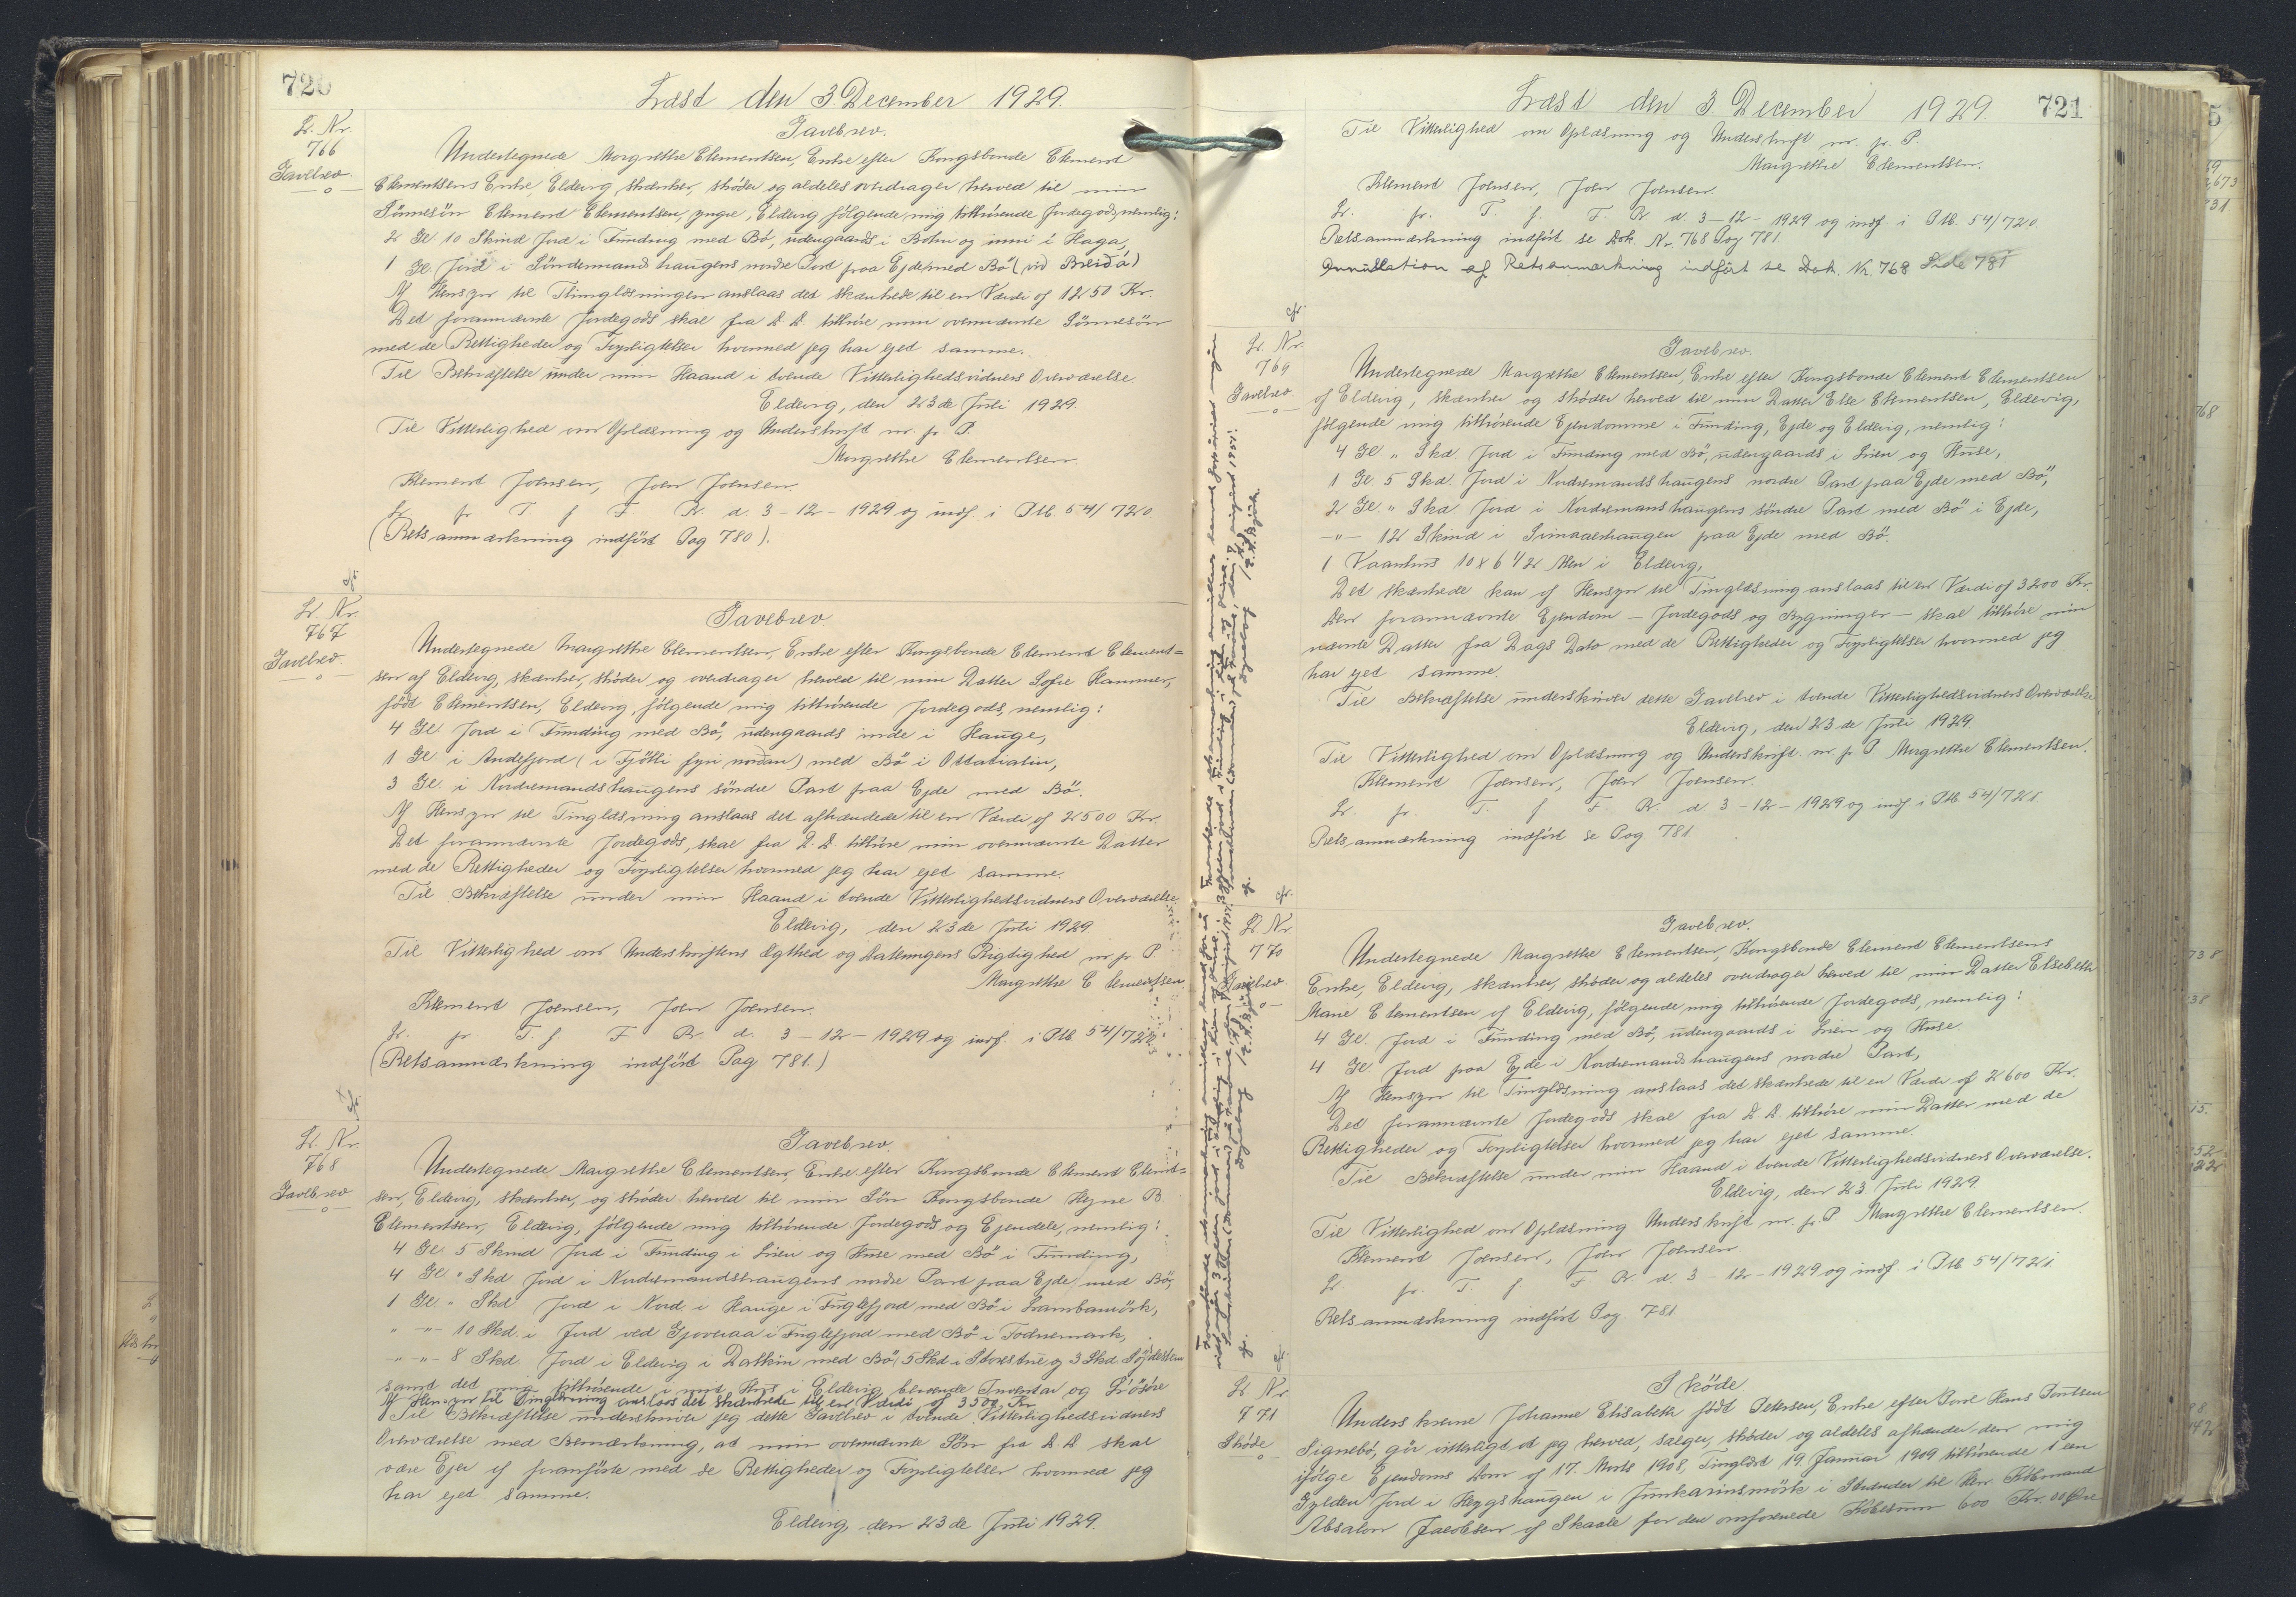 720
Læst den 3. December 1929.
L. Nr.
766
Gavebrev.
Gavebrev.
Undertegnede Margrethe Clementsen, Enke efter Kongsbonde Clement
Clementsens Enke, Eldevig, skænker, skøder og aldeles overdrager herved til min
Sönnesön Clement Clementsen, yngre, Eldevig følgende mig tilhørende Jordegods, nemlig:
2 Gl. 10 Skind Jord i Funding med Bö, udengaards i Botni og inni i Haga,
1 Gl. Jord i Söndermandshaugens nordre Part paa Ejde med Bö (við Breiðá)
Af Hensyn til Tinglæsningen anslaas det skænkede til en Værdi af 1250 Kr.
Det forannævnte Jordegods skal fra D. D. tilhøre min ovennævnte Sönnesön
med de Rettigheder og Forpligtelser hvormed jeg har ejet samme.
Til Bekræftelse under min Haand i tvende Vitterlighedsvidners Overværelse
Eldevig, den 23de Juli 1929.
Til Vitterlighed om Oplæsning og Underskrift m. f. P.
Margrethe Clementsen.
Klement Joensen, Joen Joensen.
L. fr. T. f. F. R. d. 3-12-1929 og indf. i Ptb. 54/720
(Retsanmærkning indført Pag 780).
cfr.
L. Nr.
767
Gavebrev.
Gavebrev
Undertegnede Margrethe Clementsen, Enke efter Kongsbonde Clement Clement=
sen af Eldevig, skænker, skøder og overdrager herved til min Datter Sofie Hammer,
født Clementsen, Eldevig, følgende mig tilhørende Jordegods, nemlig:
4 Gl. Jord i Funding med Bö, udengaards inde i Hauge,
1 Gl. i Andefjord (i Fjötli fyri norðan) med Bö i
3 Gl. i Nordremandshaugens söndre Part paa Ejde med Bö.
Af Hensyn til Tinglæsning anslaas det afhændede til en Værdi af 2500 Kr.
Det forannævnte Jordegods, skal fra D. D. tilhøre min ovennævnte Datter
med de Rettigheder og Forpligtelser hvormed jeg har ejet samme.
Til Bekræftelse under min Haand i tvende Vitterlighedsvidners Overværelse
Eldevig, den 23de Juli 1929
Til Vitterlighed om Underskriftens Ægthed og Dateringens Rigtighed m. f. P
Margrethe Clementsen.
Klement Joensen, Joen Joensen.
L. fr. T. f. F. R. d. 3-12-1929 og indf. i Ptb. 54/720
(Retsanmærkning indført Pag 781.)
cfr.
L. Nr.
768
Gavebrev
Gavebrev.
Undertegnede Margrethe Clementsen, Enke efter Kongsbonde Clement Clement=
sen, Eldevig, skænker, og skøder herved til min Sön Kongsbonde Hejne B
Clementsen, Eldevig, følgende mig tilhørende Jordegods og Ejendele, nemlig:
4 Gl. 5 Skind Jord i Funding i Lien og Huse med Bö i Funding,
4 Gl. " Skd Jord i Nordremandshaugens nordre Part paa Ejde med Bö,
1 Gl. " Skd. Jord i Nord. i Hauge i Fuglefjord med Bö i Lambamörk,
" -"- 10 Skd. i Jord ved Gjoveraa i Fuglefjord med Bö i
-"-"- 8 Skd. Jord i Eldevig i med Bö, 5 Skd i og 3 Skd.
samt det mig tilhørende i mit Hus i Eldevig beroende Inventar og Lösöre
Af Hensyn til Tinglæsning anslaas det skænkede til en Værdi af 3500 Kr
Til Bekræftelse underskriver jeg dette Gavebrev i tvende Vitterlighedsvidners
Overværelse med Bemærkning, at min ovennævnte Sön fra D. D skal
være Ejer af foranførte med de Rettigheder og Forpligtelser hvormed jeg
har ejet samme.
Eldevig, den 23de Juli 1929.
Læst den 3. December 1929.
721
Til Vitterlighed om Oplæsning og Underskrift m. f. P.
Margrethe Clementsen.
Klement Joensen, Joen Joensen.
L. fr. T. f. F. R. d. 3-12-1929 og indf. i Ptb. 54/720
Retsanmærkning indført se Dok. Nr. 768 Pag 781
Annullation af Retsanmærkning indført se Dok. Nr. 768 Side 781
cfr.
L. Nr.
769
Gavebrev.
Gavebrev.
Undertegnede Margrethe Clementsen, Enke efter Kongsbonde Clement Clementsen
af Eldevig, skænker og skøder herved til min Datter Else Clementsen, Eldevig,
følgende mig tilhørende Ejendomme i Funding, Ejde og Eldevig, nemlig:
4 Gl. " Skd. Jord i Funding med Bö, udengaards i Lien og Huse,
1 Gl. 5 Skd. Jord i Nordremandshaugens nordre Part paa Ejde med Bö,
2 Gl. " Skd Jord i Nordremanshaugens söndre Part med Bö i Ejde,
-"- 12 Skind i paa Ejde med Bö.
1 Vaanhus 10 x 6 1/2 Alen i Eldevig,
Det skænkede kan af Hensyn til Tinglæsning anslaas til en Værdi af 3200 Kr.
Den forannævnte Ejendom - Jordegods og Bygninger - skal tilhøre min
nævnte Datter fra Dags Dato med de Rettigheder og Forpligtelser hvormed jeg
har ejet samme.
Til Bekræftelse underskriver dette Gavebrev i tvende Vitterlighedsvidners Overværelse
Eldevig, den 23de Juli 1929.
Til Vitterlighed om Oplæsning og Underskrift. m. f. P. Margrethe Clementsen.
Klement Joensen, Joen Joensen.
L. fr. T. f. F. R. d. 3-12-1929 og indf. i Ptb. 54/721.
Retsanmærkning indført se Pag. 781
cfr.
L. Nr.
770
Gavebrev
Gavebrev.
Undertegnede Margrethe Clementsen, Kongsbonde Clement Clementsens
Enke, Eldevig, skænker, skøder og aldeles overdrager herved til min Datter Elsebeth
Marie Clementsen af Eldevig, følgende mig tilhørende Jordegods, nemlig:
4 Gl. Jord i Funding med Bö, udengaards i Lien og Huse.
4 Gl Jord paa Ejde i Nordremandshaugens nordre Part,
Af Hensyn til Tinglæsning anslaas det skænkede til en Værdi af 2600 Kr.
Det forannævnte Jordegods skal fra D. D. tilhøre min Datter med de
Rettigheder og Forpligtelser hvormed jeg har ejet samme
Til Bekræftelse under min Haand i tvende Vitterlighedsvidners Overværelse.
Eldevig, den 23 Juli 1929
Til Vitterlighed om Oplæsning Underskrift m. f. P. Margrethe Clementsen.
Klement Joensen, Joen Joensen.
L. fr. T. f. F. R. d. 3-12-1929 og indf. i Ptb 54/721
Retsanmærkning indført Pag. 781
cfr.
L. Nr.
771
Skøde
Sköde
Underskrevne Johanne Elisabeth født Petersen, Enke efter Hans
Signebö, gör vitterligt at jeg herved, sælger, skøder og aldeles afhænder den mig
ifølge Ejendoms Dom af 17. Marts 1908, Tinglæst 19. Januar 1909 tilhørende 1 en
Gylden Jord i Heygshaugen i i Strender til Herr Købmand
Absalon Jacobsen af Skaale for den omforenede Købesum 600 Kr. 00 Øre